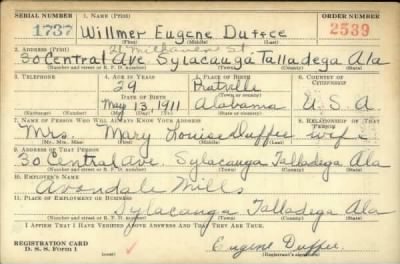 SERIAL NUMBER 1. NAME (Print) ORDER NUMBER
1737 Willmer Eugene Duffee 2539
(First) (Middle) (Last)
2. ADDRESS (Print)
30 Central Ave Sylacauga Talladega Ala
(Number and street or R. F. D. number) (Town) (County) (State)
3. TELEPHONE 4. AGE IN YEARS 5. PLACE OF BIRTH 6. COUNTRY OF CITIZENSHIP
29 Pratville
DATE OF BIRTH (Town or county)
May 13, 1911 Alabama U.S.A
(Exchange) (Number) (Mo.) (Day) (Yr.) (State or country)
7. NAME OF PERSON WHO WILL ALWAYS KNOW YOUR ADDRESS 8. RELATIONSHIP OF THAT PERSON
Mrs. Mary Louise Duffee wife
(Mr., Mrs., Miss) (First) (Middle) (Last)
9. ADDRESS OF THAT PERSON
30 Central Ave. Sylacauga Talladega Ala
(Number and street or R. F. D. number) (Town) (County) (State)
10. EMPLOYER'S NAME
Avondale Mills
11. PLACE OF EMPLOYMENT OR BUSINESS
Sylacauga Talladega Ala
(Number and street or R. F. D. number) (Town) (County) (State)
I AFFIRM THAT I HAVE VERIFIED ABOVE ANSWERS AND THAT THEY ARE TRUE.
REGISTRATION CARD
D. S. S. Form 1 Eugene Duffee
(Registrant's signature)